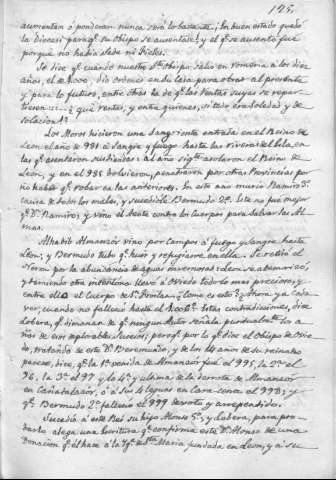 125.
aumentan ó ponderan nunca será lo bastante. ¡En buen estado queda
la Diocesis para q.e su Obispo se ausentase! y el q.e se ausentó fué
porque no habia Sede ni Fieles.
Se dice q.e cuando nuestro S.to Obispo salio en romeria á los diez
años, el de 1000, dio ordenes en de para obrar al presente
y para lo futuro, entre otras la de q.e las rentas suyas se repar-
tiesen: ¿que rentas, y entre quienes, si todo era soledad y de-
solacion?
Los Moros hicieron una sangrienta entrada en el Reino de
Leon el año de 981 á sangre y fuego hasta las riveras del Esla, en
las q.e asentaron sus tiendas: al año sig.te asolaron el Reino de
Leon, y en el 983 volvieron, penetraron por otras Provincias por
no haber q.e robar en las anteriores. En este año murio Ramiro 3.o
causa de todos los males, y sucediole Bermudo 2.o Este no fue mejor
q.e D.n Ramiro; y vino el Azote contra los Cuerpos para salvar las Al-
mas.
Alhabib Almanzor vino por Campos á fuego y sangre hasta
Leon; y Bermudo tubo q.e huir y refugiarse en ella. Se retiró el
Moro por la abundancia de aguas invernosas: Leon se atemorizó,
y temiendo otra intentona llevó á Oviedo todo lo mas precioso, y
entre ello el Cuerpo de S.n Froilan: ¿Como es esto? ¿Ahora ya cada-
ver, cuando no falleció hasta el 1006? Estas contradicciones, dice
Lobera, q.e dimanan de q.e ningun Autor señala puntualm.te los a-
ños de esos deplorables sucesos; por q.e por lo q.e dice el Obispo de Ovie-
do, tratando de este D.n Beremundo, y de los 14 años de su reinado
parece, dice, q.e la 1.a venida de Almanzor fué el 995, la 2.a el
96, la 3.a el 97 y la 4.a y ultima de la derrota de Almanzor
en Cañatalazor, ó á sus lleguas en Cara seria el 998; y
q.e Bermudo 2.o fallecio el 999 devoto y arrepentido.
Sucedió á este Rei su hijo Alonso 5.o, y Lobera, para pro-
darlo alega una Escritura q.e confirma este D.n Alonso de una
Donacion q.e él hace á la Ygl.a de S.ta Maria fundada en Leon, y á su